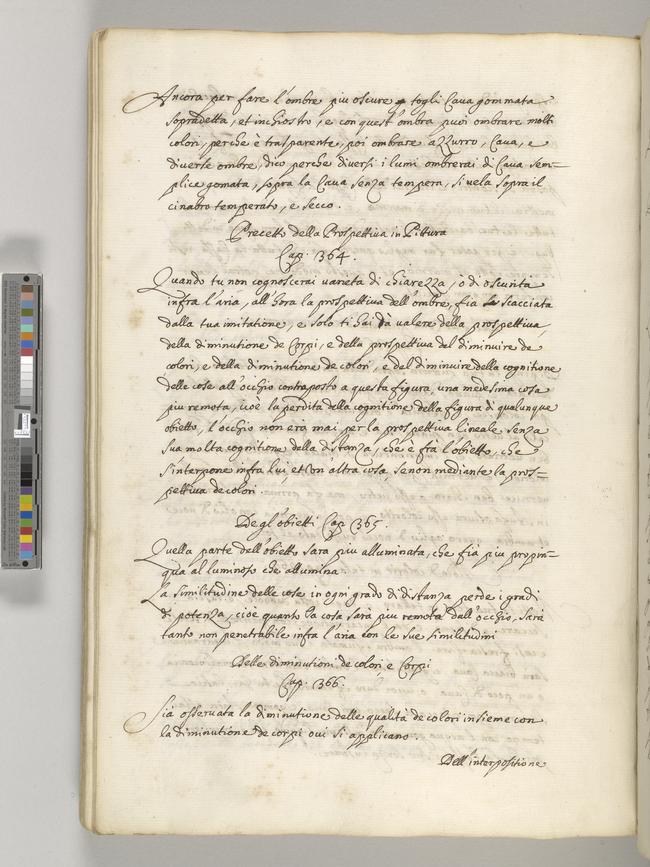 Ancora per fare l'ombre piu oscure togli Cava gommata
sopradetta, et inchiostro, e con quest'ombra puoi ombrare molti
colori, perche è trasparente, poi ombrare azzurro, Cava, e
diverse ombre, dico perche diversi i lumi ombrerai di Cava sem=
plice gomata, sopra la Cava senza tempera, si vela sopra il
cinabro temperato, e secco.
Precetto della Prospettiva in Pittura
Cap. 364.
Quando tu non cognoscerai varieta di chiarezza, ò di oscurita
infra l'aria, all'hora la prospettiva dell'ombre, fia scacciata
dalla tua imitatione, e solo ti hai dà valere della prospettiva
della diminutione de Corpi, e della prospettiva del diminuire de
colori, e della diminutione de colori, e del diminuire della cognitione
delle cose all'occhio contraposto a questa figura, una medesima cosa
piu remota, cioè la perdita della cognitione della figura di qualunque
obietto, l'occhio non erà mai per la prospettiva lineale senza
sua molta cognitione della distanza, che è frà l'obietto, che
s'interpone infra lui, et un'altra cosa, se non mediante la pros=
pettiva de colori.
Degl'obietti Cap. 365.
Quella parte dell'obietto sarà piu alluminata, che fià piu propin=
qua al luminoso che allumina.
La similitudine delle cose in ogni grado di distanza perde i gradi
di potenza, cioè quanto la cosa sarà piu remota dall'occhio, sarà
tanto non penetrabile infra l'aria con le sue similitudini
Delle diminutioni de colori, e Corpi
Cap. 366.
Sia osservata la diminutione delle qualità de colori insieme con
la diminutione de corpi oui si applicano.
Dell'interpositione